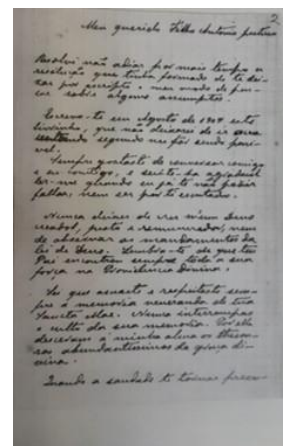 2
Meu querido Filho Antonio
Resolvi não adiar por mais tempo a
resolução que tinha formado de te dei-
xar por escripto o meu modo de pen-
sar sobre alguns assumptos.
Escrevo-te em Agosto de 1904 este
livrinho, que não deixarás de ir
segundo te fôr sendo possi-
vel.
Sempre gostaste de conversar comigo
e eu comtigo, e ser-te-ha agradavel
ler-me quando eu já te não poder
fallar, nem ser por ti escutado.
Nunca deixes de crer n'um Deus
creador, justo e remunerador, nem
de observar os mandamentos da
Lei de Deus. Lembra-te de que teu
Pai encontrou sempre toda a sua
força na Providencia Divina.
Sei que amaste e respeitaste sem-
pre a memoria veneranda de tua
Santa Mãe. Nunca interrompas
o culto da sua memoria. Por ella
desceram á minha alma os thesou-
ros abundantissimos da graça di-
vina.
Quando a saudade te tornar